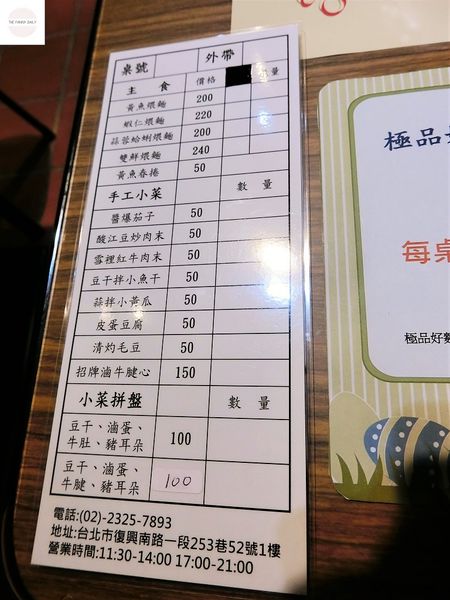 THE FUNNY DAILY
桌號 外帶
主食 價格 量
黃魚煨麵 200
蝦仁煨麵 220
蒜蓉蛤蜊煨麵 200
雙鮮煨麵 240
黃魚春捲 50
手工小菜 數量
醬爆茄子 50
酸江豆炒肉末 50
雪裡紅牛肉末 50
豆干拌小魚干 50
蒜拌小黃瓜 50
皮蛋豆腐 50
清灼毛豆 50
招牌滷牛腱心 150
小菜拼盤 數量
豆干、滷蛋、
牛肚、豬耳朵 100
豆干、滷蛋、
牛腱、豬耳朵 100
電話:(02)-2325-7893
地址:台北市復興南路一段253巷52號1樓
營業時間:11:30-14:00 17:00-21:00
極品
每桌
極品好